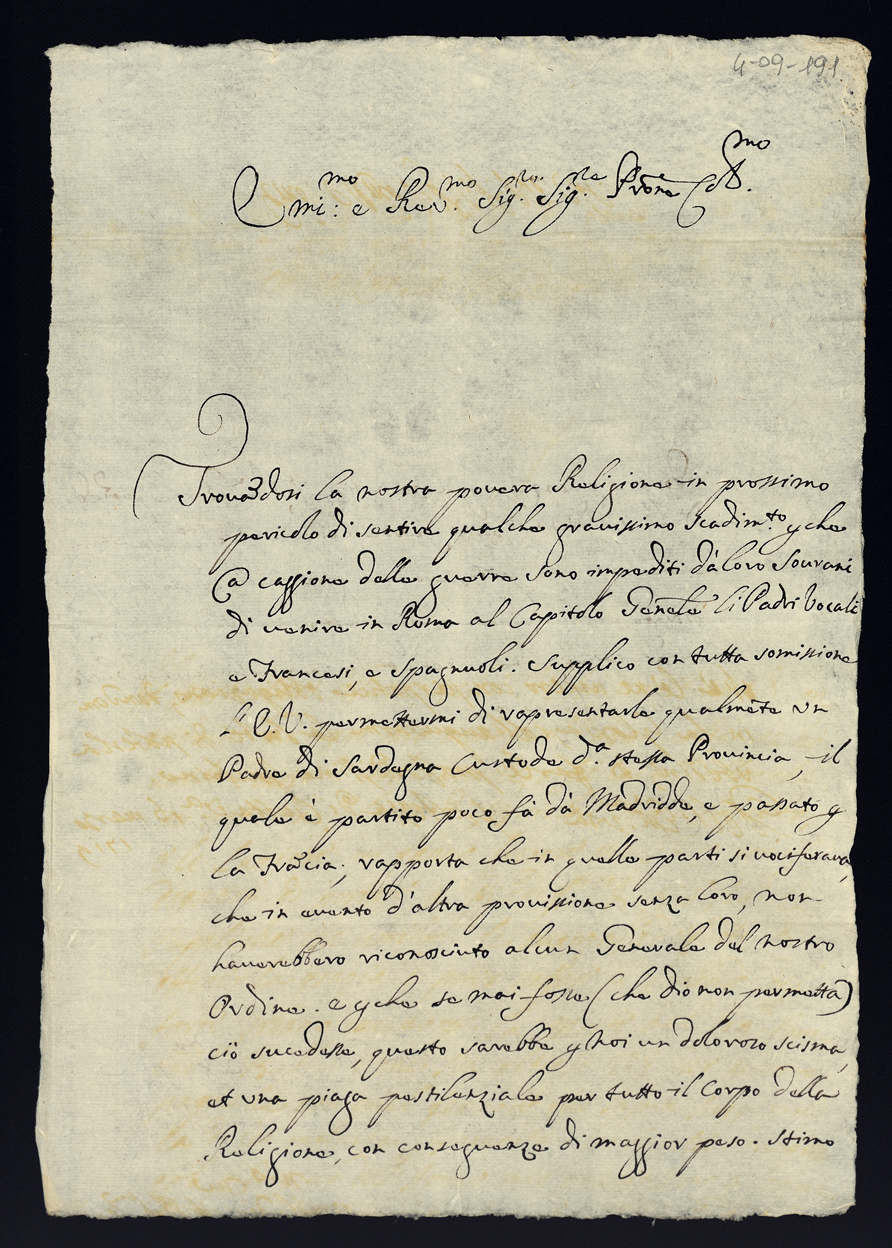 4-09-191
Emi:mo e Rev.mo Sig.re Sig.re Prone Col.mo
Trovãdosi la nostra povera Religione in prossimo
pericolo di sentire qualche gravissimo scadim.to p che
a caggione delle guerre sono impediti dà loro Sourani
di venire in Roma al Capitolo Genẽle li Padri Vocali
e Francesi, e Spagnuoli. Supplico con tutta somissione
l'E.V. permettermi di rapresentarle qualmẽte un
Padre di Sardegna Custode d.a stessa Provincia, il
quale è partito poco fà dà Madridde, e passato p
la Frãcia, rapporta che in quelle parti si vociferava,
che in evento d'altra provissione senza loro, non
haverebbero riconosciuto alcun Generale del nostro
Ordine. e p che se mai fosse (che dio non permetta)
ciò sucedesse, questo sarebbe p noi un doloroso scisma,
et una piaga pestilenziale per tutto il Corpo della
Religione, con conseguenze di maggior peso. stimo